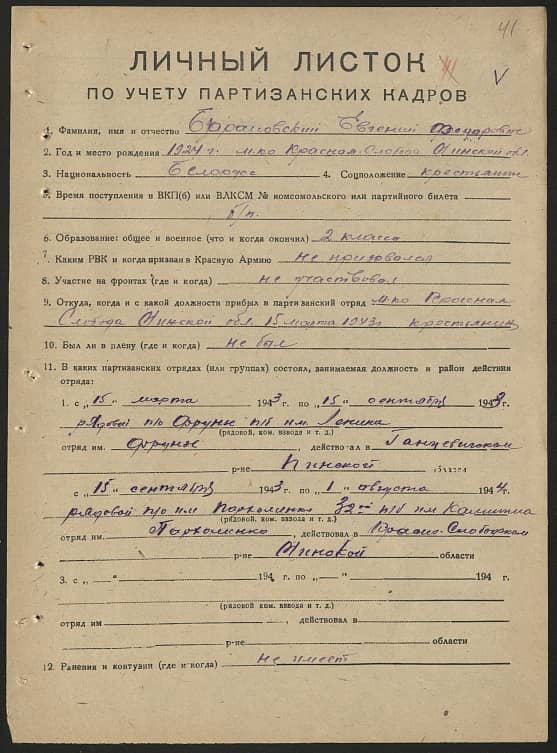 41
ЛИЧНЫЙ ЛИСТОК
V
ПО УЧЕТУ ПАРТИЗАНСКИХ КАДРОВ
1. Фамилия, имя и отчество Барановский Евгений Федорович
2. Год и место рождения 1924 г. м-ко Красная Слобода Минской обл.
3. Национальность Белорус 4. Соцположение крестьянин
5. Время поступления в ВКП(б) или ВЛКСМ № комсомольского или партийного билета
б/п.
6. Образование: общее и военное (что и когда окончил) 2 класса
7. Каким РВК и когда призван в Красную Армию не призывался
8. Участие на фронтах (где и когда) не участвовал
9. Откуда, когда и с какой должности прибыл в партизанский отряд м-ко Красная
Слобода Минской обл. 15 марта 1943г. крестьянин
10. Был ли в плену (где и когда) не был
11. В каких партизанских отрядах (или группах) состоял, занимаемая должность и район действия
отряда:
1. с „15“ марта 1943 г. по „15“ сентября 1943 г.
рядовой п/о Фрунзе п/б им. Ленина
(рядовой, ком. взвода и т. д.)
отряд им. Фрунзе, действовал в Ганцевичском
р-не Пинской области
с „15“ сентября 1943 г. по „1“ августа 1944 г.
рядовой п/о им Пархоменко п/б им Калинина
(рядовой, ком. взвода и т. д.)
отряд им. Пархоменко, действовал в Красно-Слободском
р-не Минской области
3. с „—“ 194 г. по „—“ 194 г.
(рядовой, ком. взвода и т. д.)
отряд им , действовал в
р-не области
12. Ранения и контузии (где и когда) не имеет